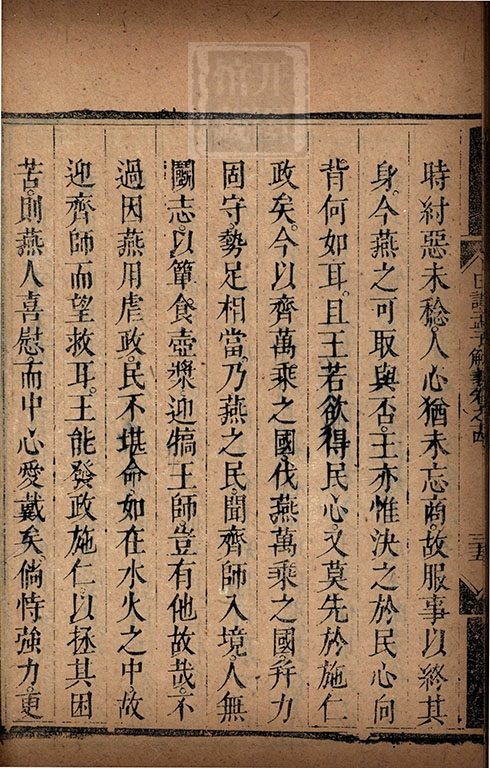 時紂惡未稔。人心猶未忘商。故服事以終其
身。今燕之可取與否。王亦惟決之於民心向
背何如耳。且王若欲得民心。又莫先於施仁
政矣。今以齊萬乘之國。伐燕萬乘之國。幷力
固守。勢足相當。乃燕之民。聞齊師入境。人無
鬬志。以簞食壺漿迎犒王師。豈有他故哉。不
過因燕用虐政。民不堪命。如在水火之中。故
迎齊師而望救耳。王能發政施仁以拯其困
苦。則燕人喜慰。而中心愛戴矣。倘恃強力。更
日講孟子解義卷之四
三五